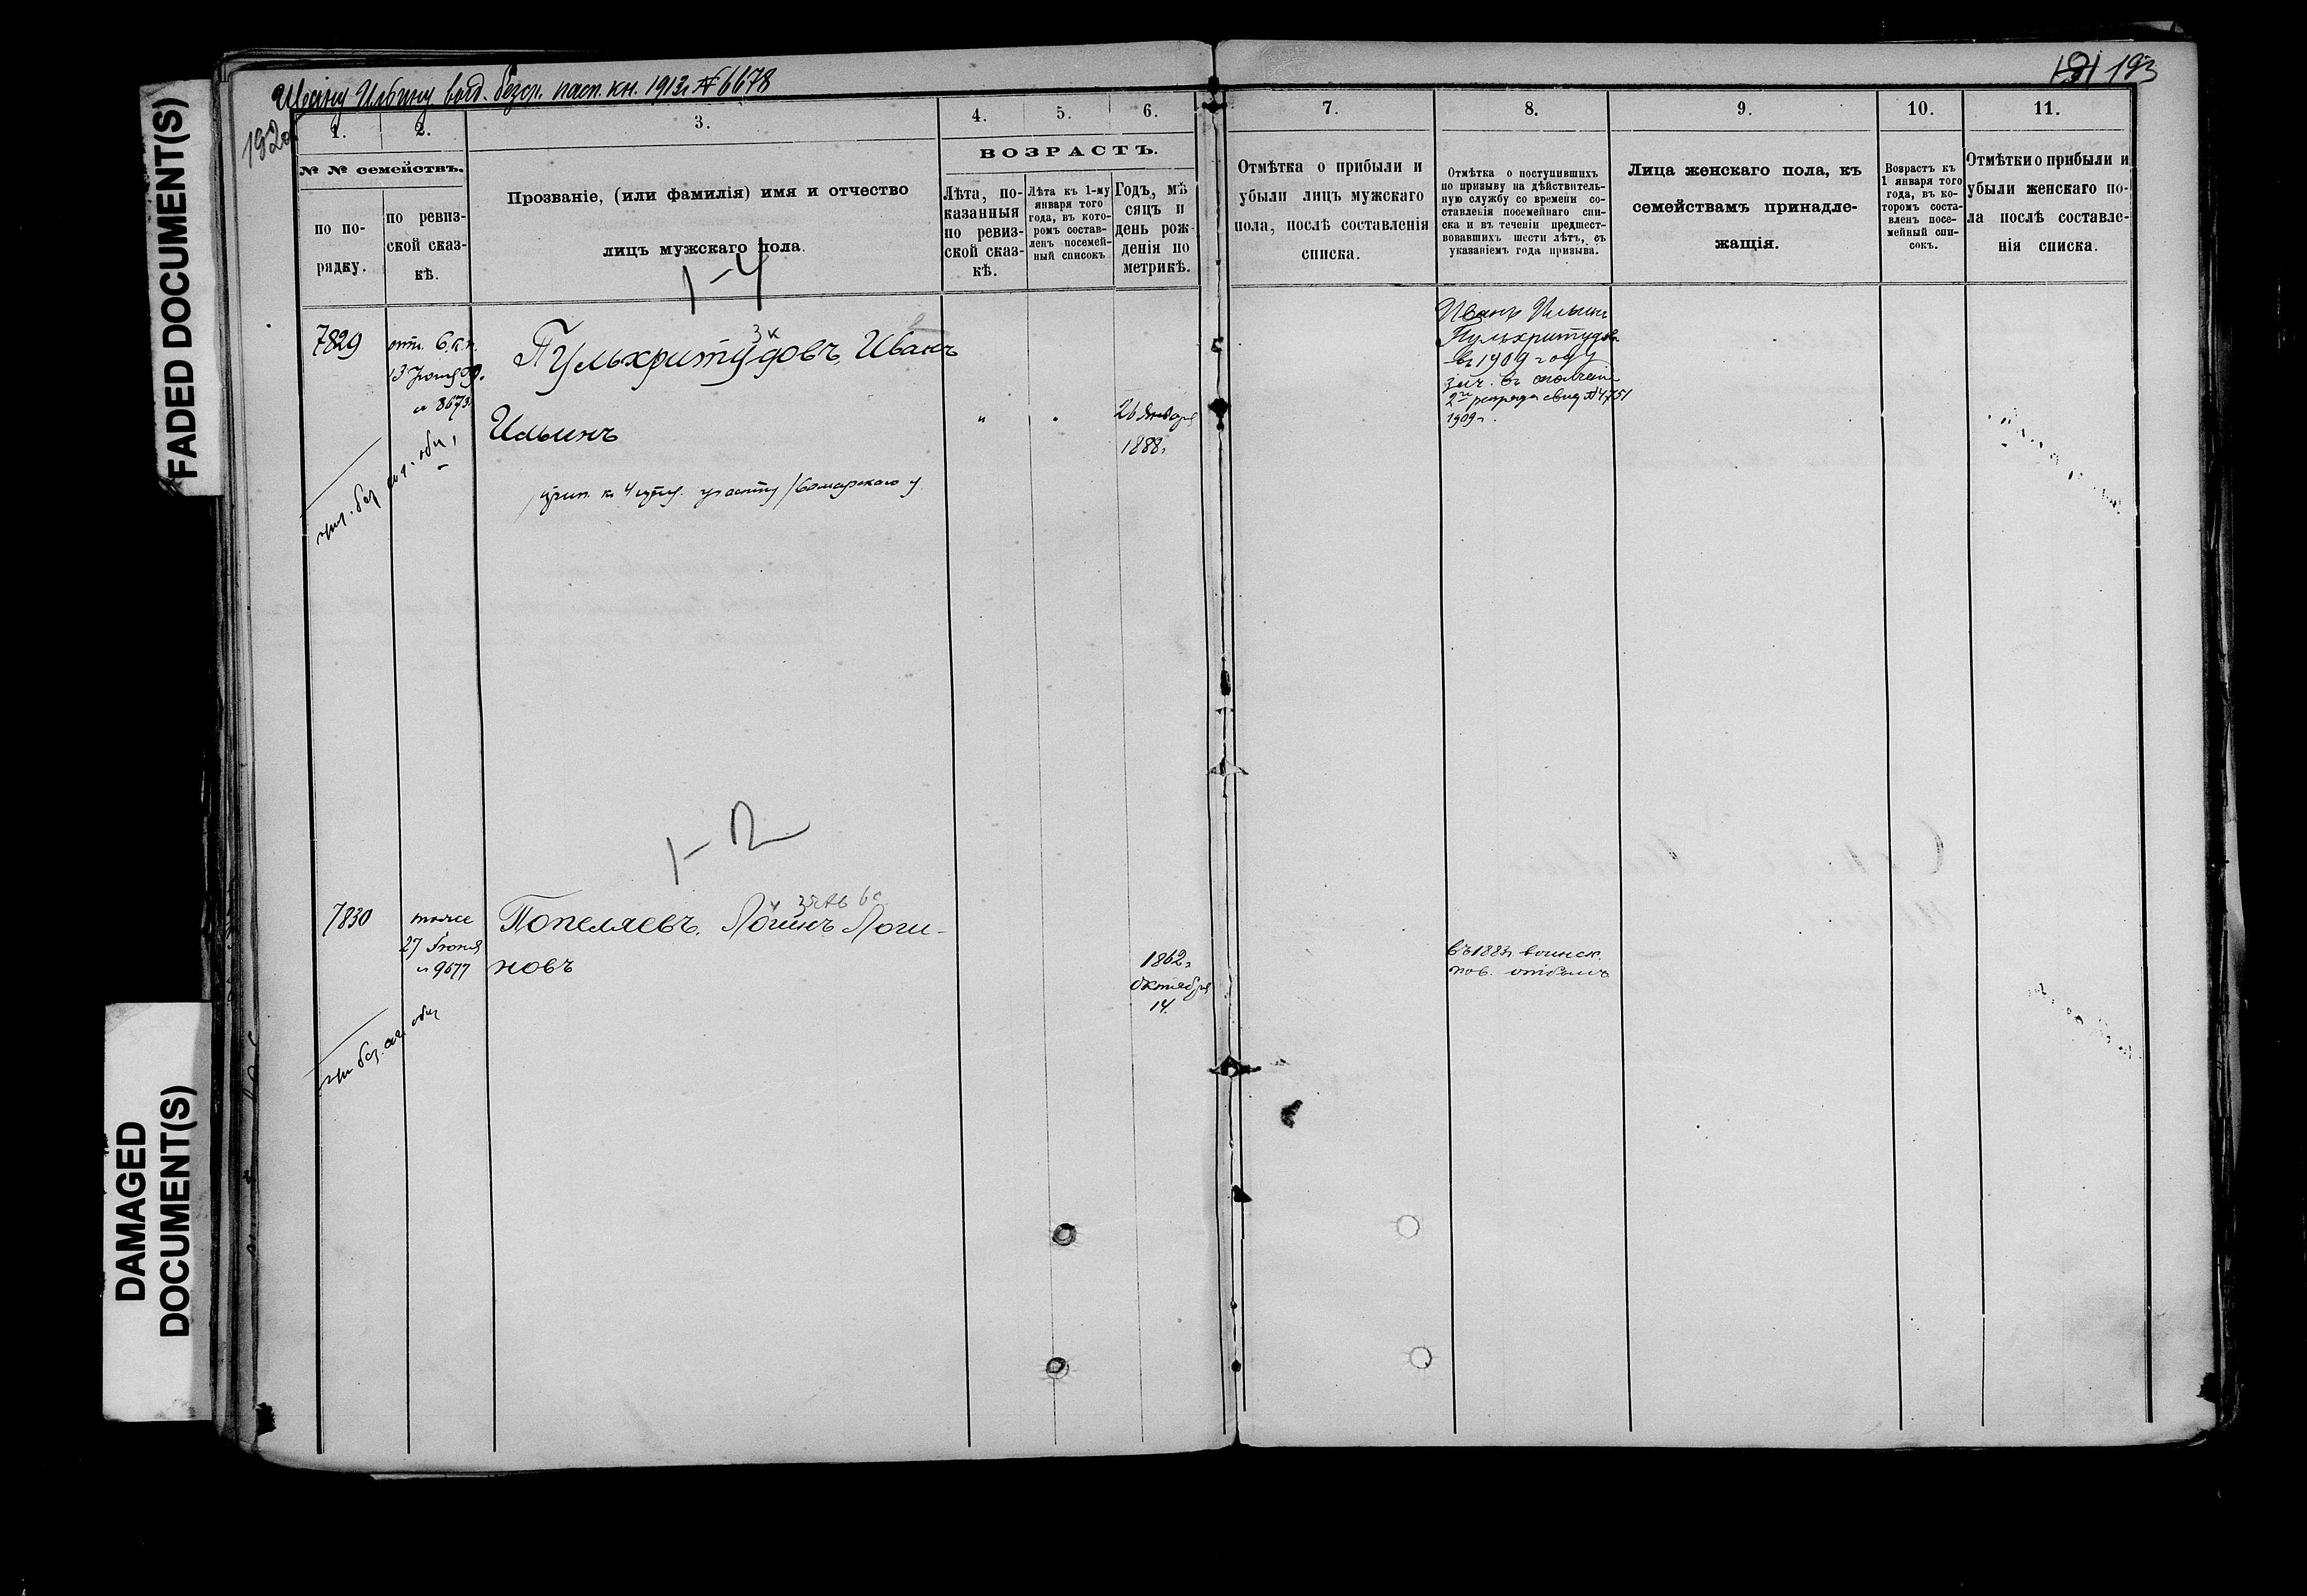 FADED DOCUMENT(S)
DAMAGED
DOCUMENT(S)
Ивану Ильину выд. безср. пасп. кн. 1913 г. № 6678
193
1.
2.
3.
4.
5.
6.
№ № семействъ.
по по-
рядку.
по ревиз-
ской сказ-
кѣ.
Прозваніе, (или фамилія) имя и отчество
лицъ мужскаго пола.
ВОЗРАСТЪ.
Лѣта, по-
казанныя
по ревиз-
ской сказ-
кѣ.
Лѣта къ 1-му
января того
года, въ кото-
ромъ состав-
ленъ посемей-
ный списокъ
Годъ, мѣ
сяцъ и
день рож-
денія по
метрикѣ.
7.
8.
9.
10.
11.
Отмѣтка о прибыли и
убыли лицъ мужскаго
пола, послѣ составленія
списка.
Отмѣтка о поступившихъ
по призыву на дѣйствитель-
ную службу со времени со-
ставленія посемейнаго спи-
ска и въ теченіи предшест-
вовавшихъ шести лѣтъ, съ
указаніемъ года призыва.
Лица женскаго пола, къ
семействамъ принадле-
жащія.
Возрастъ къ
1 января того
года, въ ко-
торомъ соста-
вленъ посе-
мейный спи-
сокъ.
Отмѣтки о прибыли и
убыли женскаго по-
ла послѣ составле-
нія списка.
1-4
7829
№ 8673
Пульхритудовъ, Иванъ
Ильинъ
26 Января
1888 г.
Иванъ Ильинъ
Пульхритудовъ
въ 1909 году
зач. въ ополченіе
2го разряда свид № 4751
1909 г.
1-2
7830
тоже
27 Іюня
№ 9677
Попеляевъ, Логинъ Логи-
новъ
1862 г.
Октября
14.
въ 1883 г. воинск.
пов. отбылъ